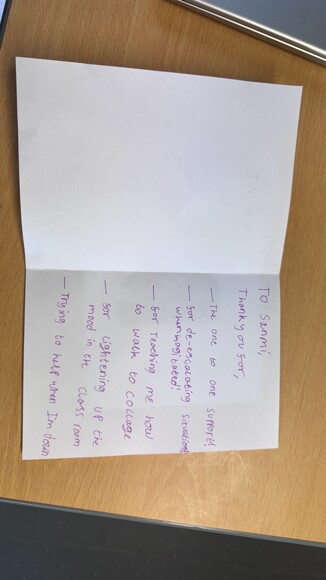 TO Sanmi,
Thankyou for,
— The one to one support!
— for de-escalating situations
when agitated!
— for Teaching me how
to walk to Collage
— for Lightening up the
mood in the class room
— Trying to help when Im down